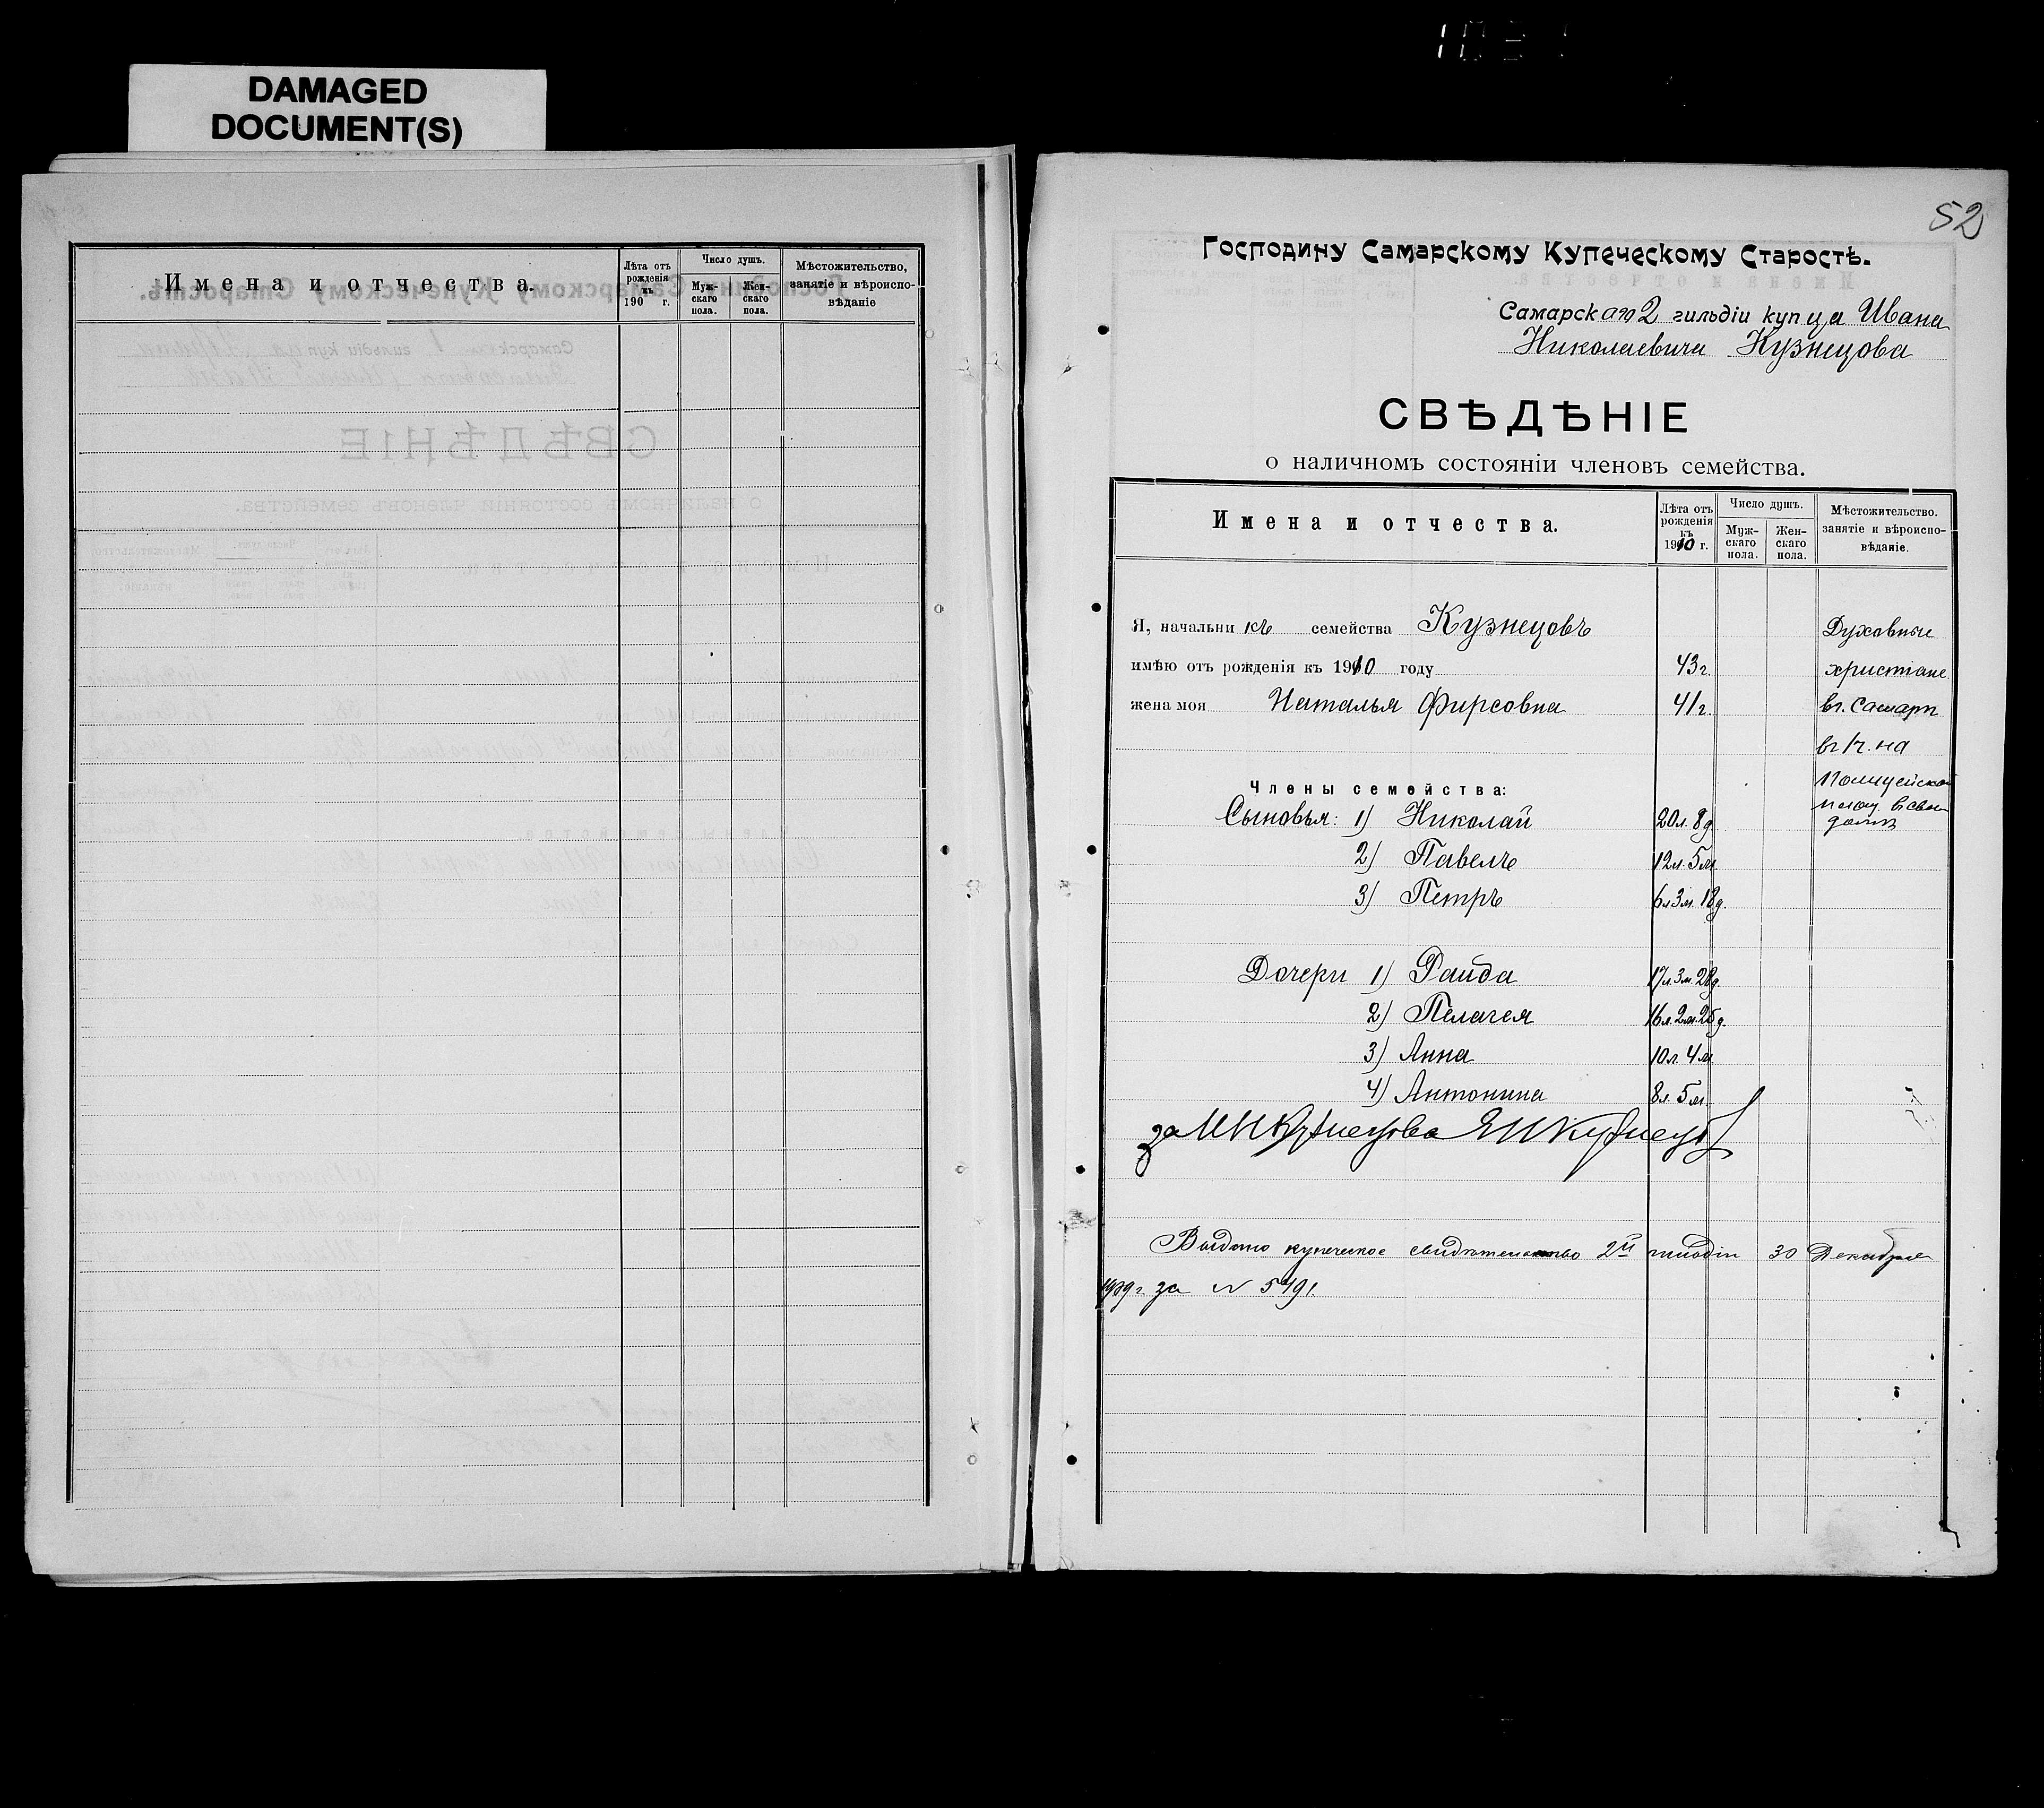 DAMAGED
DOCUMENT(S)
Имена и отчества.
Лѣта отъ рожденія къ 190 г.
Число душъ.
Муж-скаго пола.
Жен-скаго пола.
Мѣстожительство, занятіе и вѣроиспо-вѣданіе
52
Господину Самарскому Купеческому Старостѣ.
Самарскаго 2 гильдіи купца Ивана
Николаевича Кузнецова
СВѢДѢНІЕ
о наличномъ состояніи членовъ семейства.
Имена и отчества.
Лѣта отъ рожденія къ 1910 г.
Число душъ.
Муж-скаго пола.
Жен-скаго пола.
Мѣстожительство. занятіе и вѣроиспо-вѣданіе.
Я, начальникъ семейства Кузнецовъ Духовные
имѣю отъ рожденія къ 1910 году 43 г. христіане
жена моя Наталья Фирсовна 41 г. въ г. Самарѣ
въ 1 ч. на
Члены семейства: Полицейской
площ. въ свое
Сыновья: 1) Николай 20 л. 8 д. домѣ
2) Павелъ 12 л. 5 м.
3) Петръ 6 л. 3 м. 18 д.
Дочери 1) Раида 17 л. 3 м. 28 д.
2) Пелагея 16 л. 2 м. 25 д.
3) Анна 10 л. 4 м.
4) Антонина 8 л. 5 м.
за И Н Кузнецова Я И Кузнецов
Выдано купеческое свидѣтельство 2й гильдіи 30 Декабря
1909 г. за N 5491.